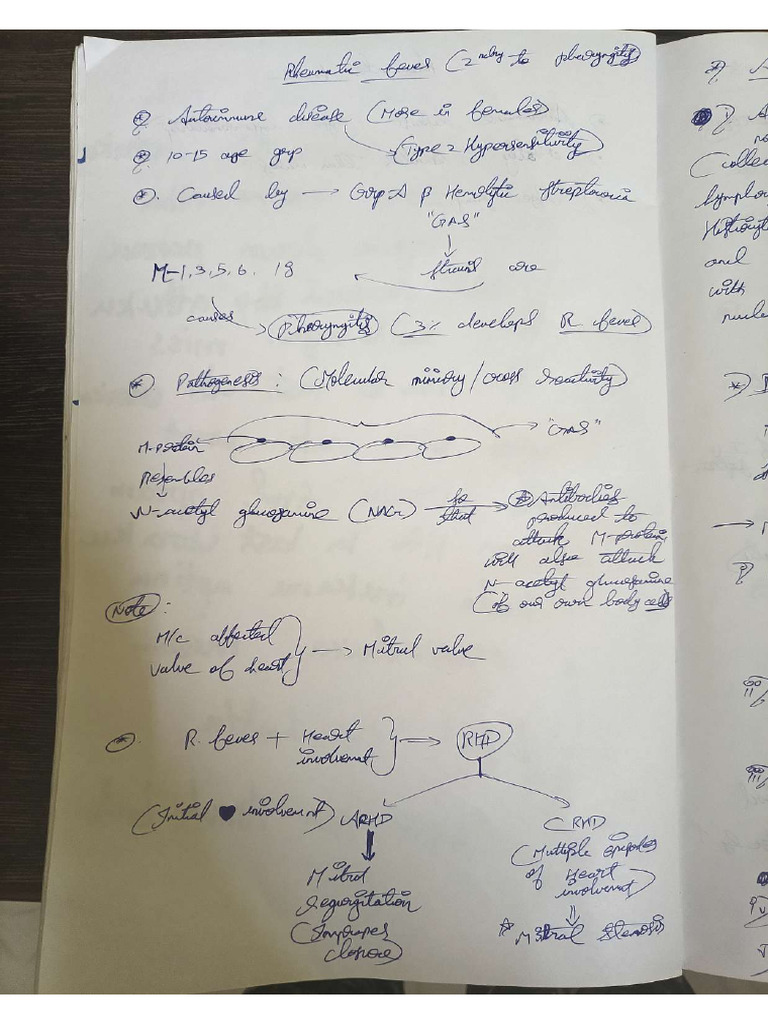 Rheumatic fever (2ndry to pharyngitis)
* Autoimmune disease (More in females)
* 10-15 age grp
(Type 2 Hypersensitivity)
* Caused by → Grp-A β Hemolytic Streptococcia
"GAS"
M-1,3,5,6, 18
strains are
causes
Pharyngitis (3% develops R. fever)
* Pathogenesis : (Molecular mimicry/cross reactivity)
M-protein
"GAS"
Resembles
N-acetyl glucosamine (NAG) so that → * Antibodies
produced to
attack M-protein,
will also attack
N-acetyl glucosamine
(of our own body cells)
Note :
M/c affected
valve of heart
→ Mitral valve
* R. fever + Heart
involvemnt
→ RHD
(Initial ♥ involvemnt) ARHD
CRHD
(Multiple episodes
of Heart
involvemnt)
Mitral
regurgitation
(Improper
closure)
* Mitral Stenosis